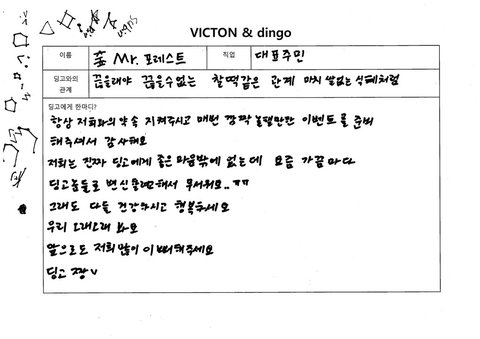 VICTON & dingo
이름
숲 Mr. 포레스트
직업
대표주민
딩고와의
관계
끊을래야 끊을수없는 찰떡같은 관계 마치 쌀없는 식혜처럼
딩고에게 한마디?
항상 저희와의 약속 지켜주시고 매번 깜짝 놀랄만한 이벤트를 준비
해주셔서 감사해요
저희는 진짜 딩고에게 좋은 마음밖에 없는데 요즘 가끔마다
딩고놈들로 변신 해서 무서워요..ㅠㅠ
그래도 다들 건강하시고 행복하세요
우리 오래오래 봐요
앞으로도 저희 많이 이뻐해주세요
딩고 짱v